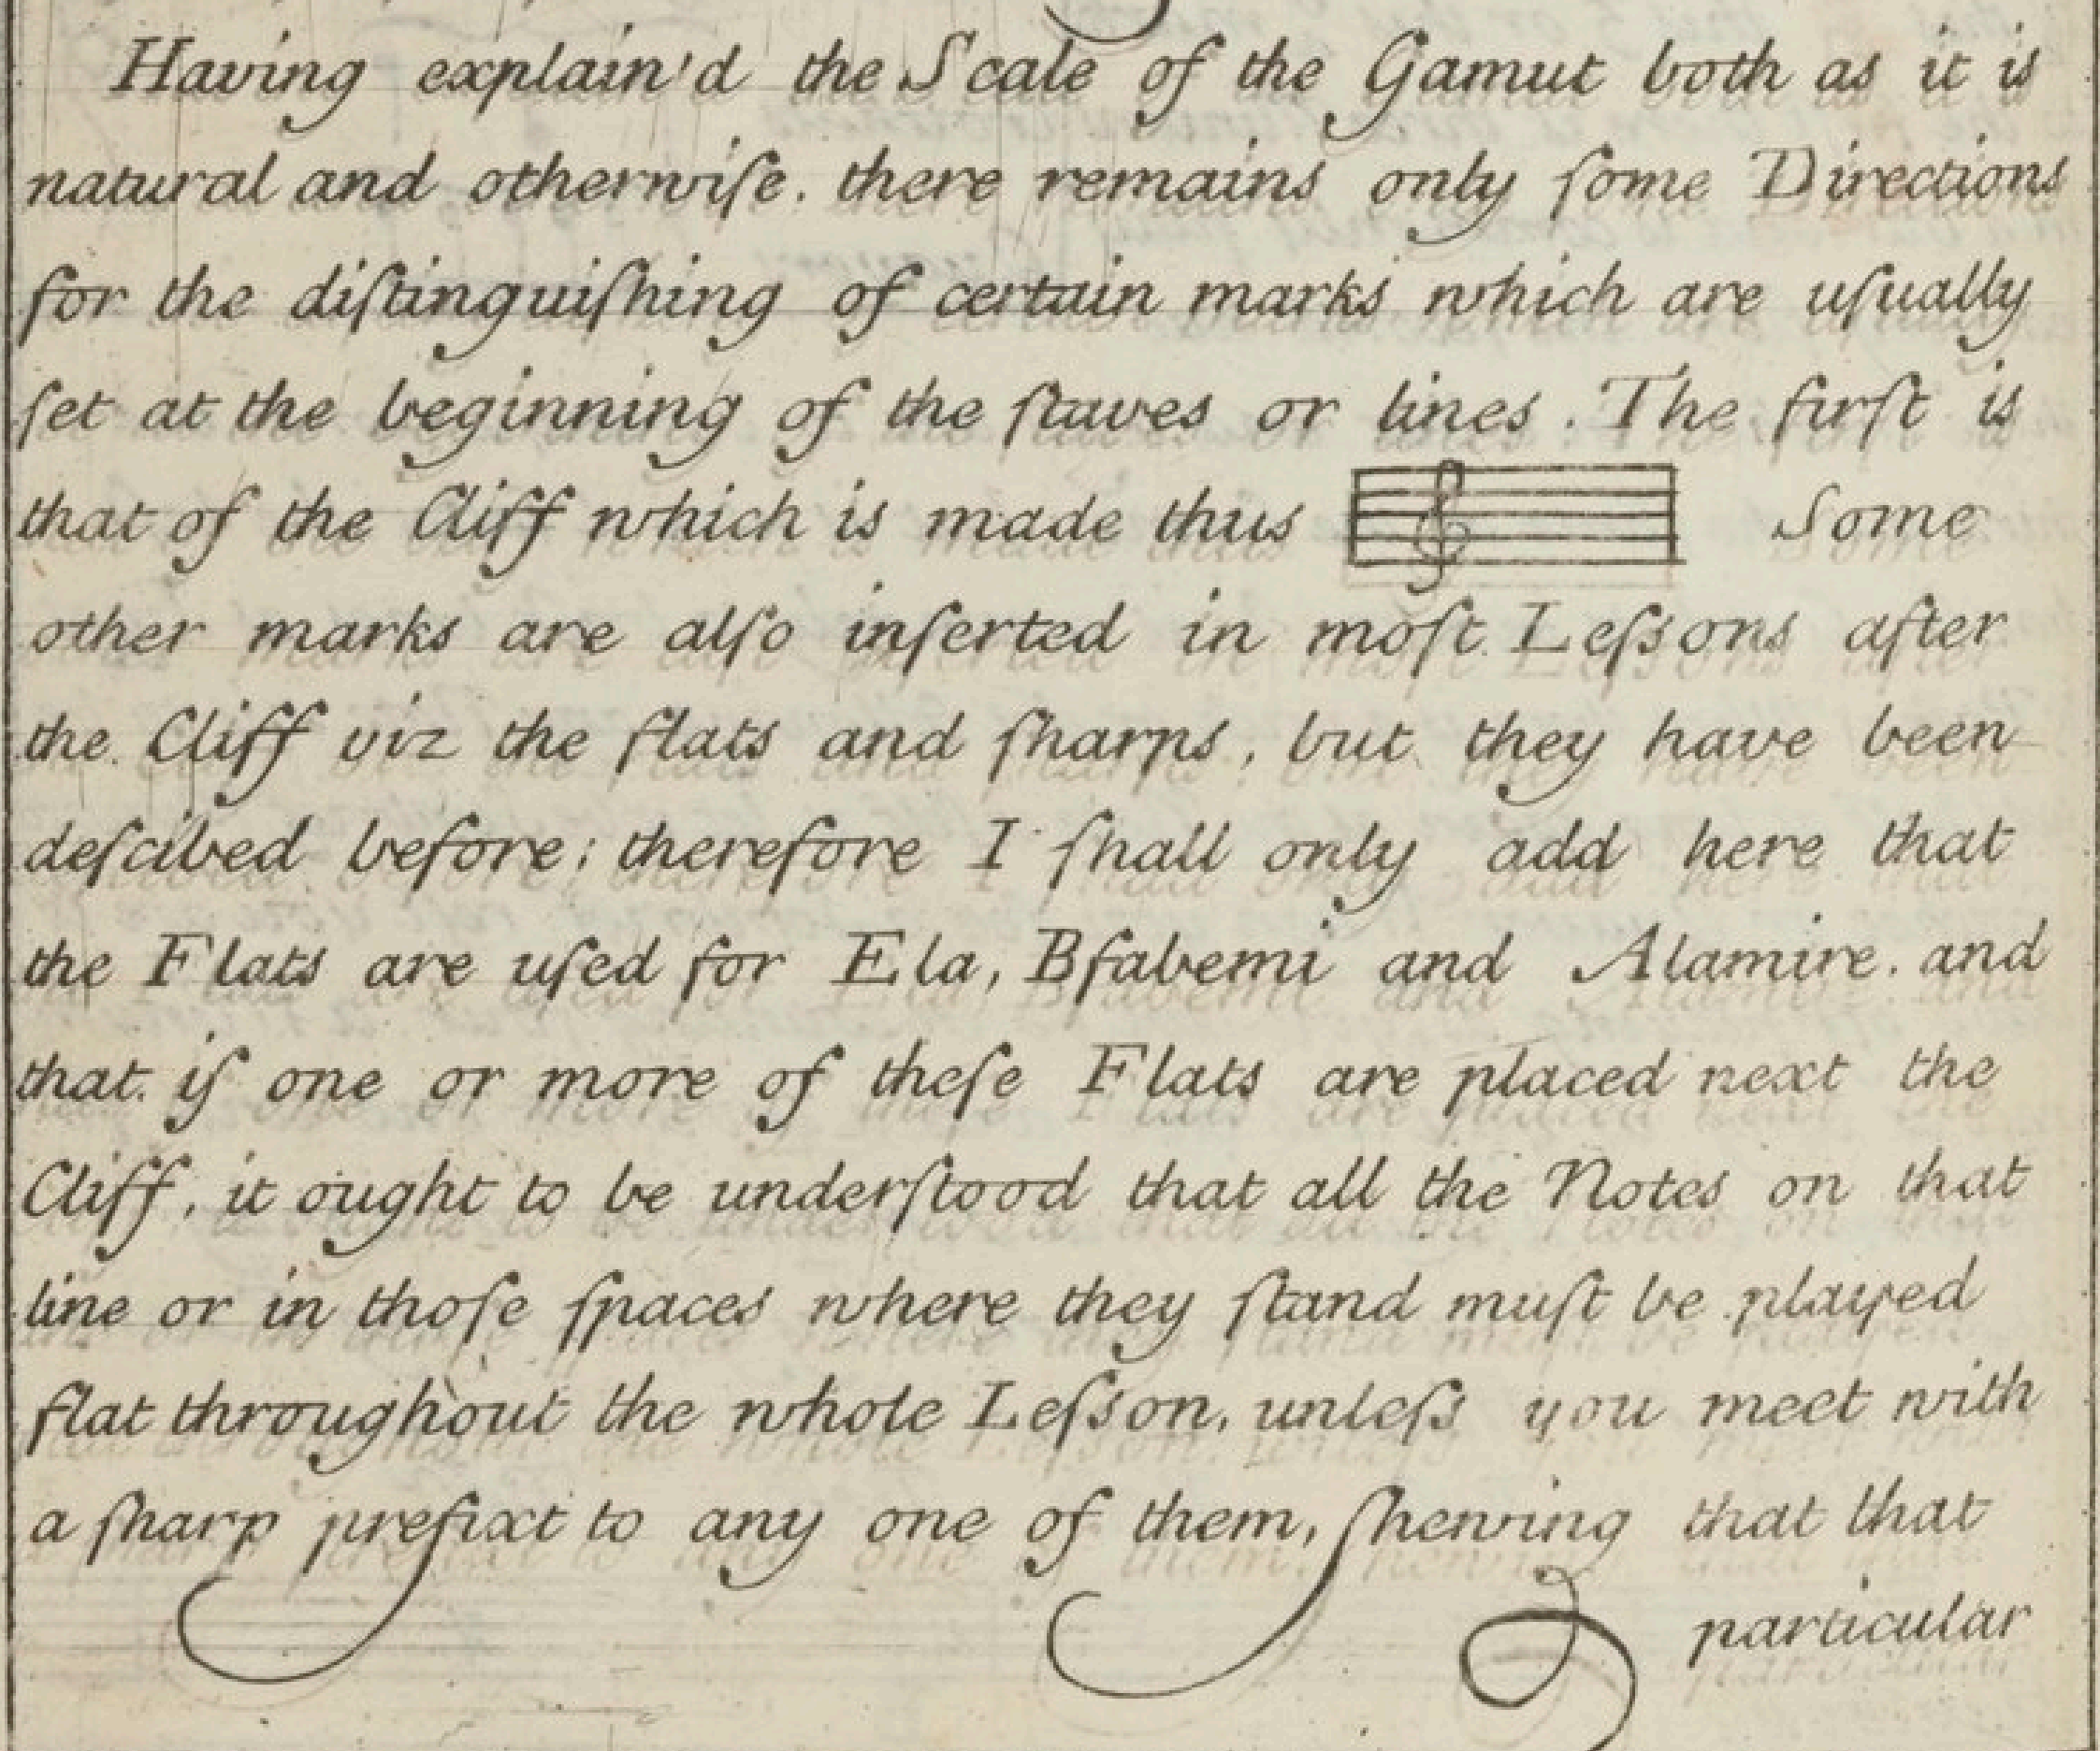 Having explain'd the Scale of the Gamut both as it is
natural and otherwiſe. there remains only ſome Directions
for the diſtinguiſhing of certain marks which are uſually
ſet at the beginning of the ſtaves or lines. The firſt is
that of the Cliff which is made thus Some
other marks are alſo inſerted in moſt Leſsons after
the Cliff viz the flats and ſharps, but they have been
deſcibed before; therefore I ſhall only add here that
the Flats are uſed for Ela, Bfabemi and Alamire. and
that if one or more of theſe Flats are placed next the
Cliff, it ought to be underſtood that all the Notes on that
line or in thoſe ſpaces where they ſtand muſt be played
flat throughout the whole Leſson, unleſs you meet with
a ſharp prefixt to any one of them, ſhewing that that
particular